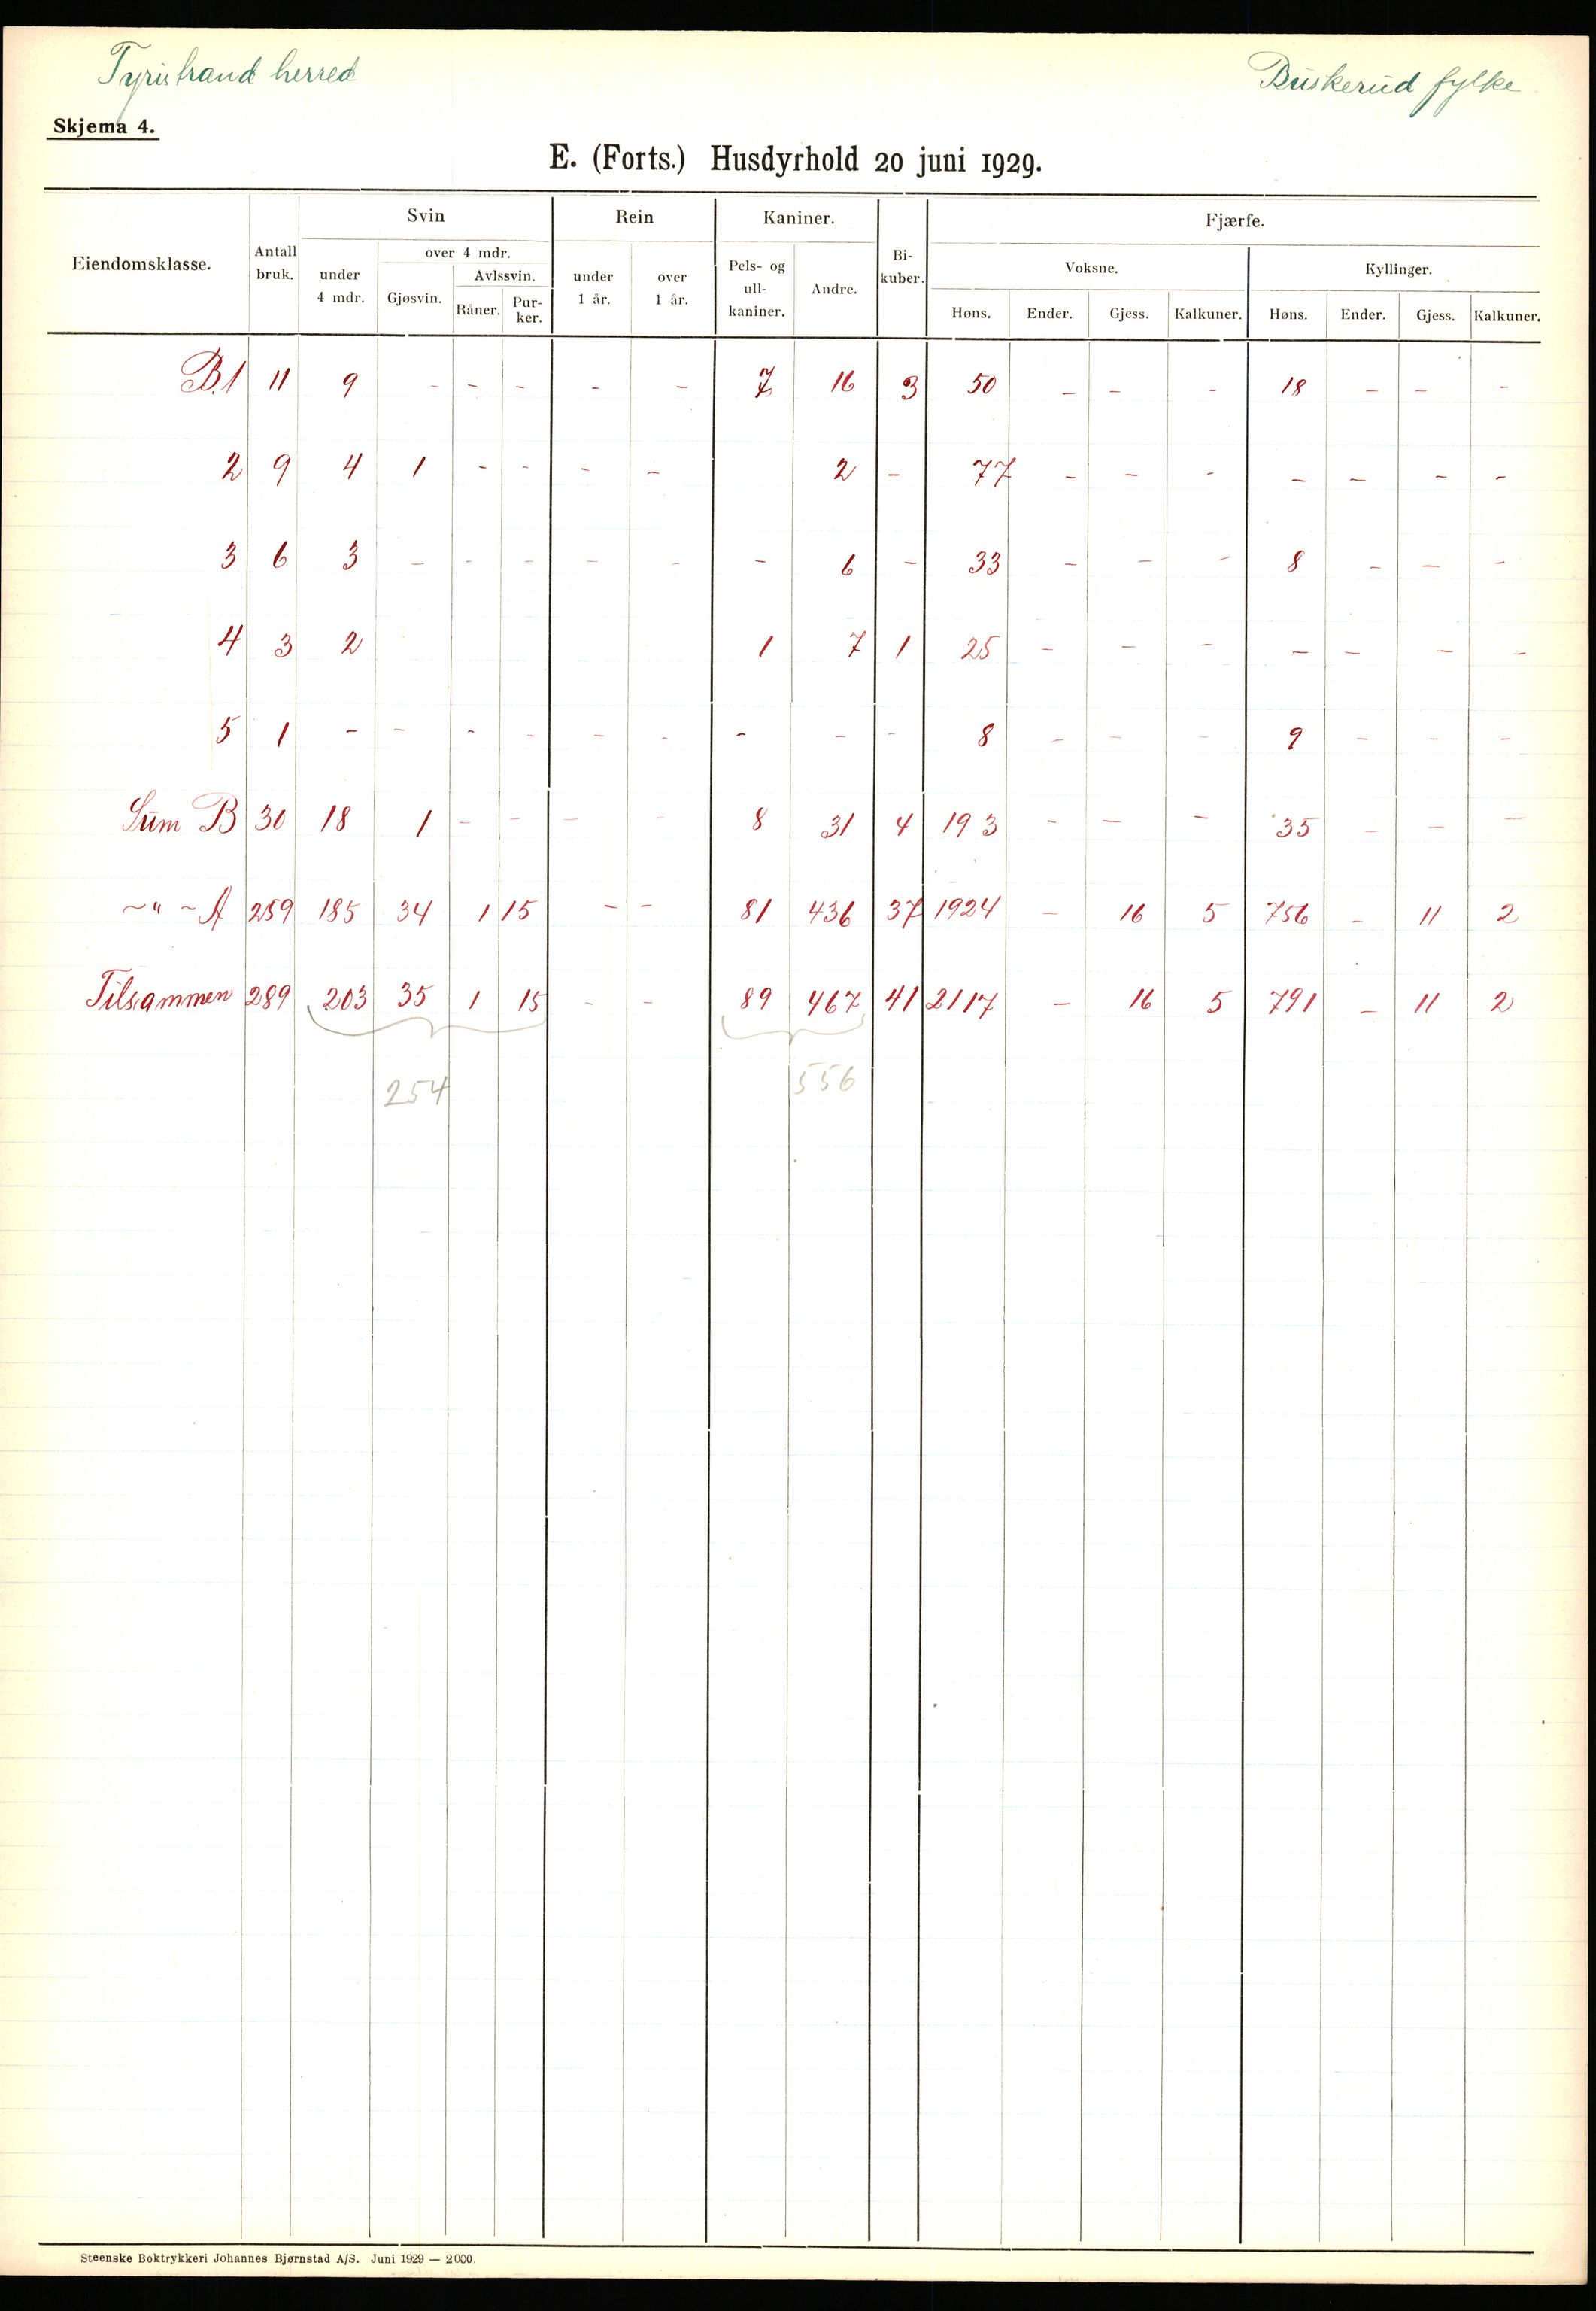 Tyristrand herred Buskerud fylke
Skjema 4.
E. (Forts.) Husdyrhold 20 juni 1929.
Eiendomsklasse. Antall bruk. Svin Rein Kaniner. Bi-kuber. Fjærfe.
under 4 mdr. over 4 mdr. under 1 år. over 1 år. Pels- og ull-kaniner. Andre. Voksne. Kyllinger.
Gjøsvin. Avlssvin.
Råner. Pur-ker. Høns. Ender. Gjess. Kalkuner. Høns. Ender. Gjess. Kalkuner.
B.1 11 9 - - - - - 7 16 3 50 - - - 18 - - -
2 9 4 1 - - - - 2 - 77 - - - - - - -
3 6 3 - - - - - - 6 - 33 - - - 8 - - -
4 3 2 1 7 1 25 - - - - - - -
5 1 - - - - - - - - - 8 - - - 9 - - -
Sum B 30 18 1 - - - - 8 31 4 193 - - - 35 - - -
-"- A 259 185 34 1 15 - - 81 436 37 1924 - 16 5 756 - 11 2
Tilsammen 289 203 35 1 15 - - 89 467 41 2117 - 16 5 791 - 11 2
254 556
Steenske Boktrykkeri Johannes Bjørnstad A/S. Juni 1929 — 2000.